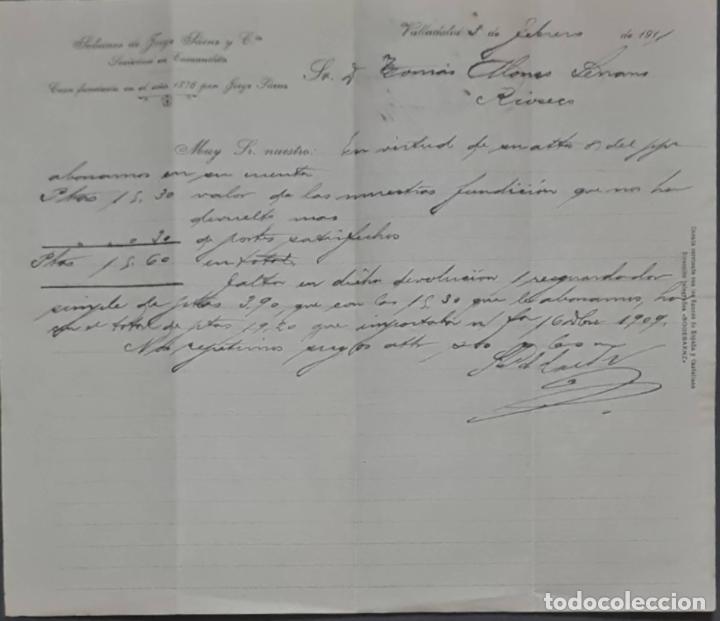 Sobrinos de Jorge Sáenz y Cª
Sociedad en Comandita
Casa fundada en el año 1876 por Jorge Sáenz
Valladolid 8 de febrero de 1911
Sr. D Tomás Alonso
Rioseco
Muy Sr. nuestro: En virtud de su atta del ppº
abonamos en su cuenta
Ptas 15.30 valor de las muestras fundición que nos ha
devuelto mas
" 0.30 de portes satisfechos
Ptas 15.60 en total
Falta en dicha devolución 1 resguardador
simple de ptas 3.90 que con las 15.30 que le abonamos, ha
el total de ptas 19.20 que importaba fra 1909.
Nos repetimos suyos
Cuenta corriente con los Bancos de España y Castellano
todocoleccion.net